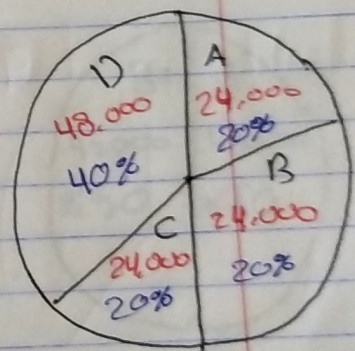 D
48.000
40%
A
24,000
20%
B
24.000
20%
C
24,000
20%